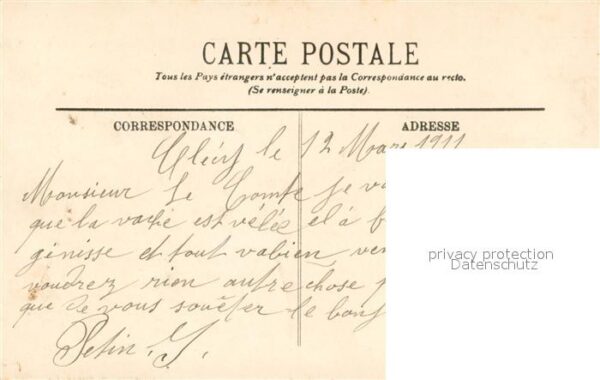 CARTE POSTALE
Tous les Pays étrangers n'acceptent pas la Correspondance au recto.
(Se renseigner à la Poste).
CORRESPONDANCE
ADRESSE
le 12 Mars 1911
Monsieur Le Comte Je
que la vache est vélée el à
génisse et tout vabien
voudrez rien autre chose
que de vous souéter le
privacy protection
Datenschutz